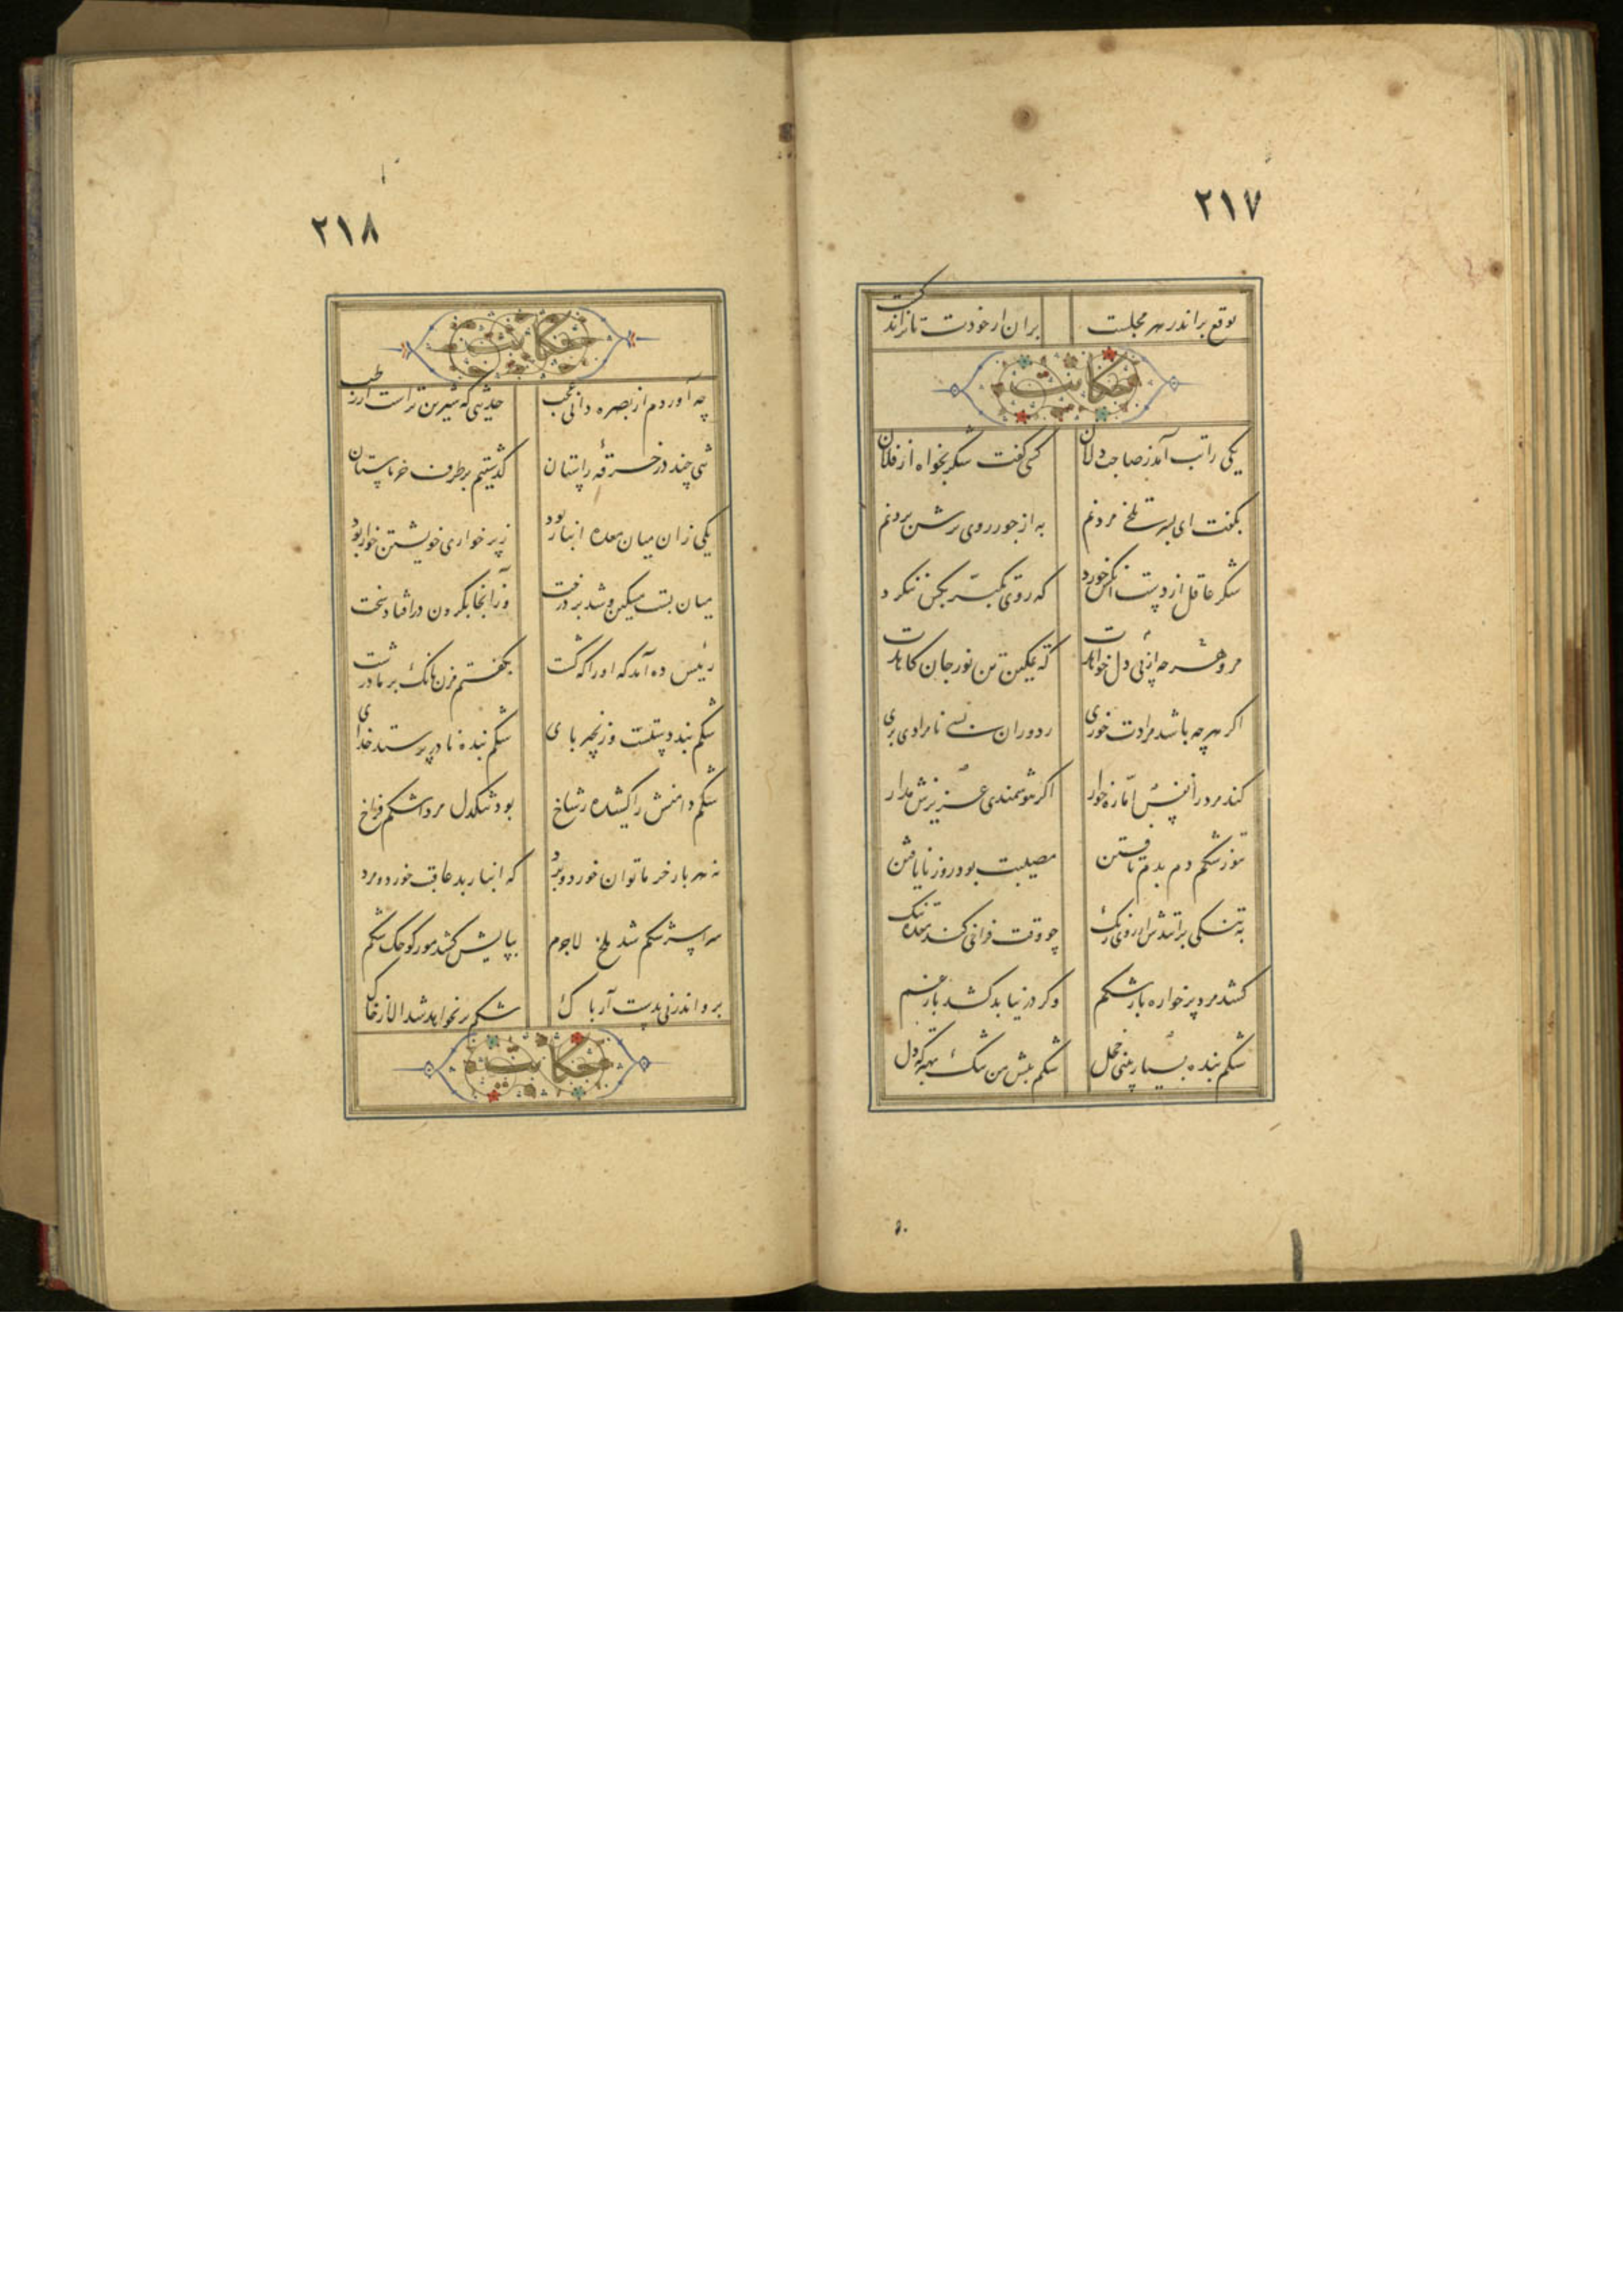 ٢١٧
توقع براند ز هر مجلست بران از خودت تا نراند کست
حکایت
یکی را تب آمد ز صاحب دلان کسی گفت شکر بخواه از فلان
بگفت ای پسر تلخی مردنم به از جور روی ترش بردنم
شکر عاقل از دست آنکس نخورد که روی از تکبر بر
مرو هر چه از پی دل خواهدت که تمکین تن نور جان کاهدت
اگر هر چه باشد مرادت خوری ز دوران بسی نامرادی بری
کند مرد را نفس اماره خوار اگر هوشمندی عزیزش مدار
تنور شکم دم بدم تافتن مصیبت بود روز نایافتن
به تنگی بریزاندت روی رنگ چو وقت فراخی کند معده تنگ
کشد مرد پرخواره بار شکم وگر در نیابد کشد بار غم
شکم بنده بسیار بینی خجل شکم پیش من تنگ بهتر که دل
٥٠
٢١٨
حکایت
چه آوردم از بصره دانی عجب حدیثی که شیرین ترست از رطب
تنی چند در خرقهٔ راستان گذشتیم بر طرف خرماستان
یکی زان میان معده انبار بود ز پر خواری خویشتن خوار بود
میان بست مسکین و شد بر درخت وز آنجا بگردن در افتاد سخت
رئیس ده آمد که او را که کشت بگفتم مزن بانگ بر ما درشت
شکم بند دستست و زنجیر پای شکم بنده نادر پرستد خدای
شکم دامنش را کشیده ز شاخ بود تنگدل مرد اشکم فراخ
نه هر بار خرما توان خورد و برد که انبار بد عاقبت خورد و مرد
سراسر شکم شد ملخ لاجرم بپایش کشد مور کوچک شکم
برو اندرونی بدست آر پاک شکم پر نخواهد شد الا ز خاک
حکایت